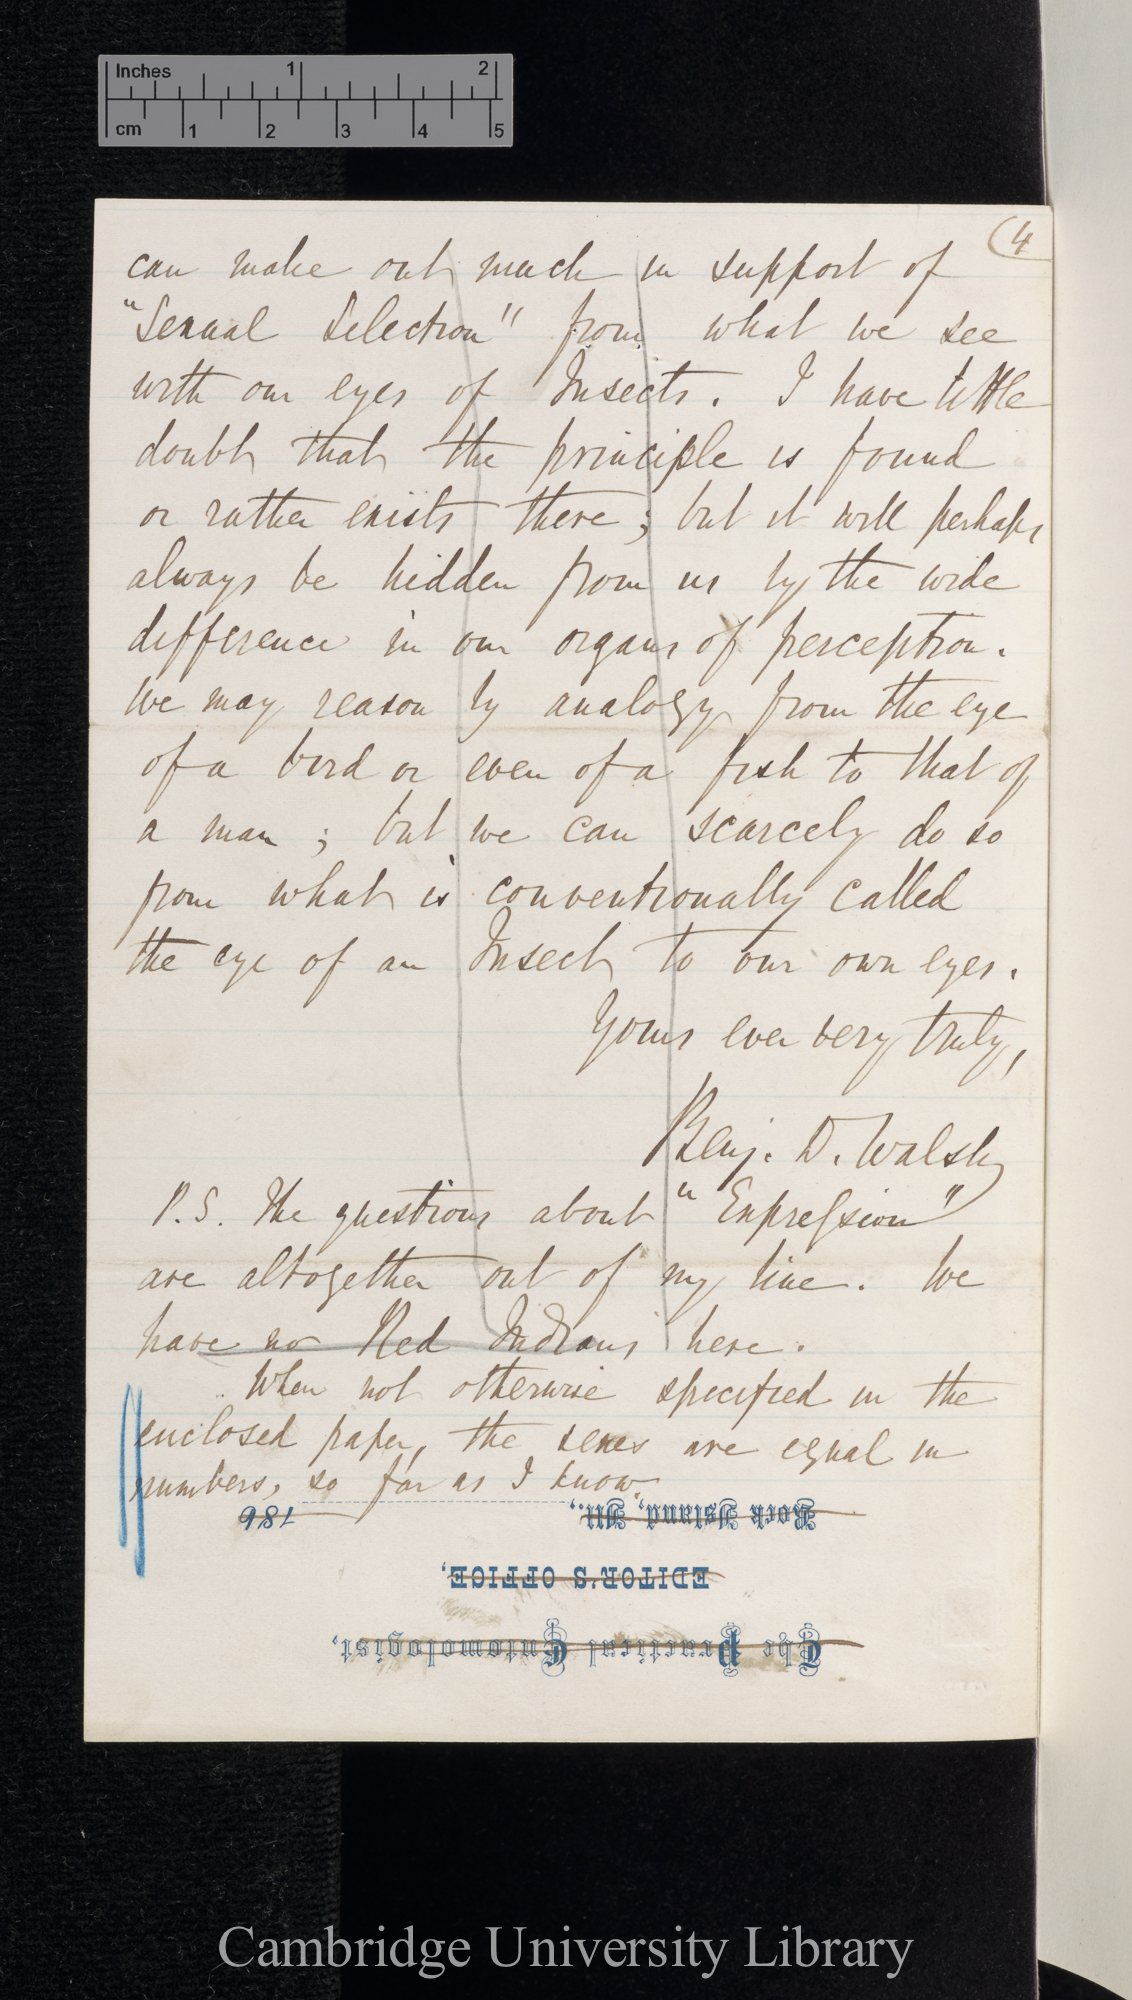 Inches 1 2
cm 1 2 3 4 5
(4
can make out much in support of
"Sexual Selection" from what we see
with our eyes of Insects. I have little
doubt that the principle is found
or rather exists there; but it will perhaps
always be hidden from us by the wide
difference in our organs of perception.
We may reason by analogy from the eye
of a bird or even of a fish to that of
a man; but we can scarcely do so
from what is conventionally called
the eye of an Insect to our own eyes.
Yours ever very truly,
Benj. D. Walsh
P.S. The questions about "Expreſsion"
are altogether out of my line. We
have no Red Indians here.
When not otherwise specified in the
enclosed paper, the sexes are equal in
numbers, so far as I know.
Rock Island, Ill., 186
EDITOR'S OFFICE,
The Practical Entomologist.
Cambridge University Library